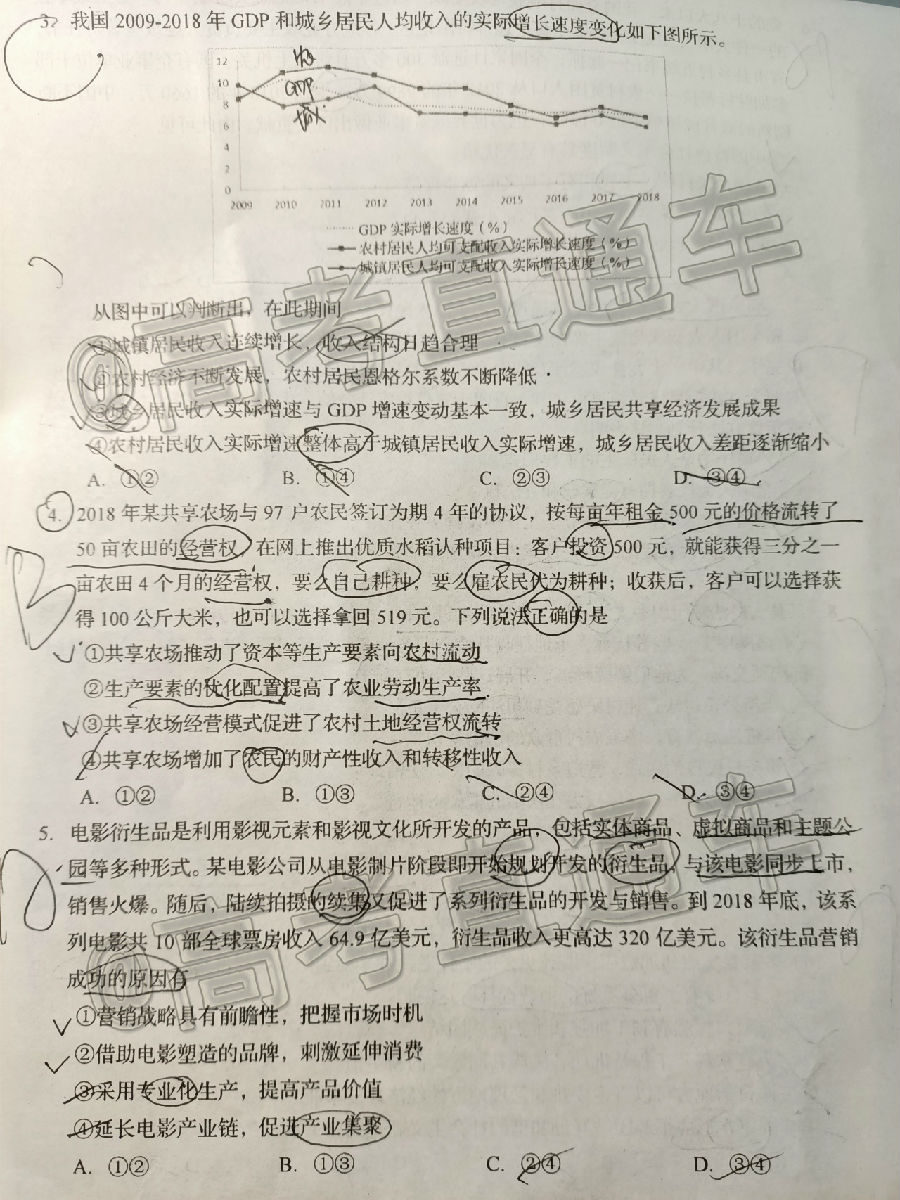 3. 我国 2009-2018 年 GDP 和城乡居民人均收入的实际增长速度变化如下图所示。
12
10
8
6
4
2
0
农
GDP
城
2009 2010 2011 2012 2013 2014 2015 2016 2017 2018
GDP 实际增长速度（%）
农村居民人均可支配收入实际增长速度（%）
城镇居民人均可支配收入实际增长速度（%）
从图中可以判断出，在此期间
①城镇居民收入连续增长，收入结构日趋合理
②农村经济不断发展，农村居民恩格尔系数不断降低
③城乡居民收入实际增速与 GDP 增速变动基本一致，城乡居民共享经济发展成果
④农村居民收入实际增速整体高于城镇居民收入实际增速，城乡居民收入差距逐渐缩小
A. ①② B. ①④ C. ②③ D. ③④
4. 2018 年某共享农场与 97 户农民签订为期 4 年的协议，按每亩年租金 500 元的价格流转了
50 亩农田的经营权，在网上推出优质水稻认种项目：客户投资 500 元，就能获得三分之一
亩农田 4 个月的经营权，要么自己耕种，要么雇农民代为耕种；收获后，客户可以选择获
得 100 公斤大米，也可以选择拿回 519 元。下列说法正确的是
B
①共享农场推动了资本等生产要素向农村流动
②生产要素的优化配置提高了农业劳动生产率
③共享农场经营模式促进了农村土地经营权流转
④共享农场增加了农民的财产性收入和转移性收入
A. ①② B. ①③ C. ②④ D. ③④
5. 电影衍生品是利用影视元素和影视文化所开发的产品，包括实体商品、虚拟商品和主题公
园等多种形式。某电影公司从电影制片阶段即开始规划开发的衍生品，与该电影同步上市，
销售火爆。随后，陆续拍摄的续集又促进了系列衍生品的开发与销售。到 2018 年底，该系
列电影共 10 部全球票房收入 64.9 亿美元，衍生品收入更高达 320 亿美元。该衍生品营销
成功的原因有
①营销战略具有前瞻性，把握市场时机
②借助电影塑造的品牌，刺激延伸消费
③采用专业化生产，提高产品价值
④延长电影产业链，促进产业集聚
A. ①② B. ①③ C. ②④ D. ③④
@高考直通车
@高考直通车